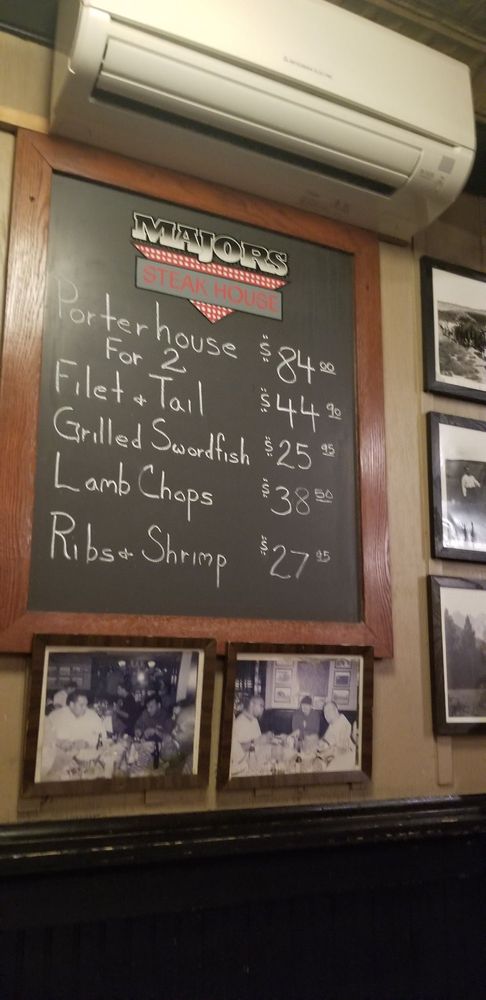 MITSUBISHI ELECTRIC
MAJORS
STEAK HOUSE
Porterhouse $84.00
For 2
Filet & Tail $44.90
Grilled Swordfish $25.95
Lamb Chops $38.50
Ribs & Shrimp $27.95